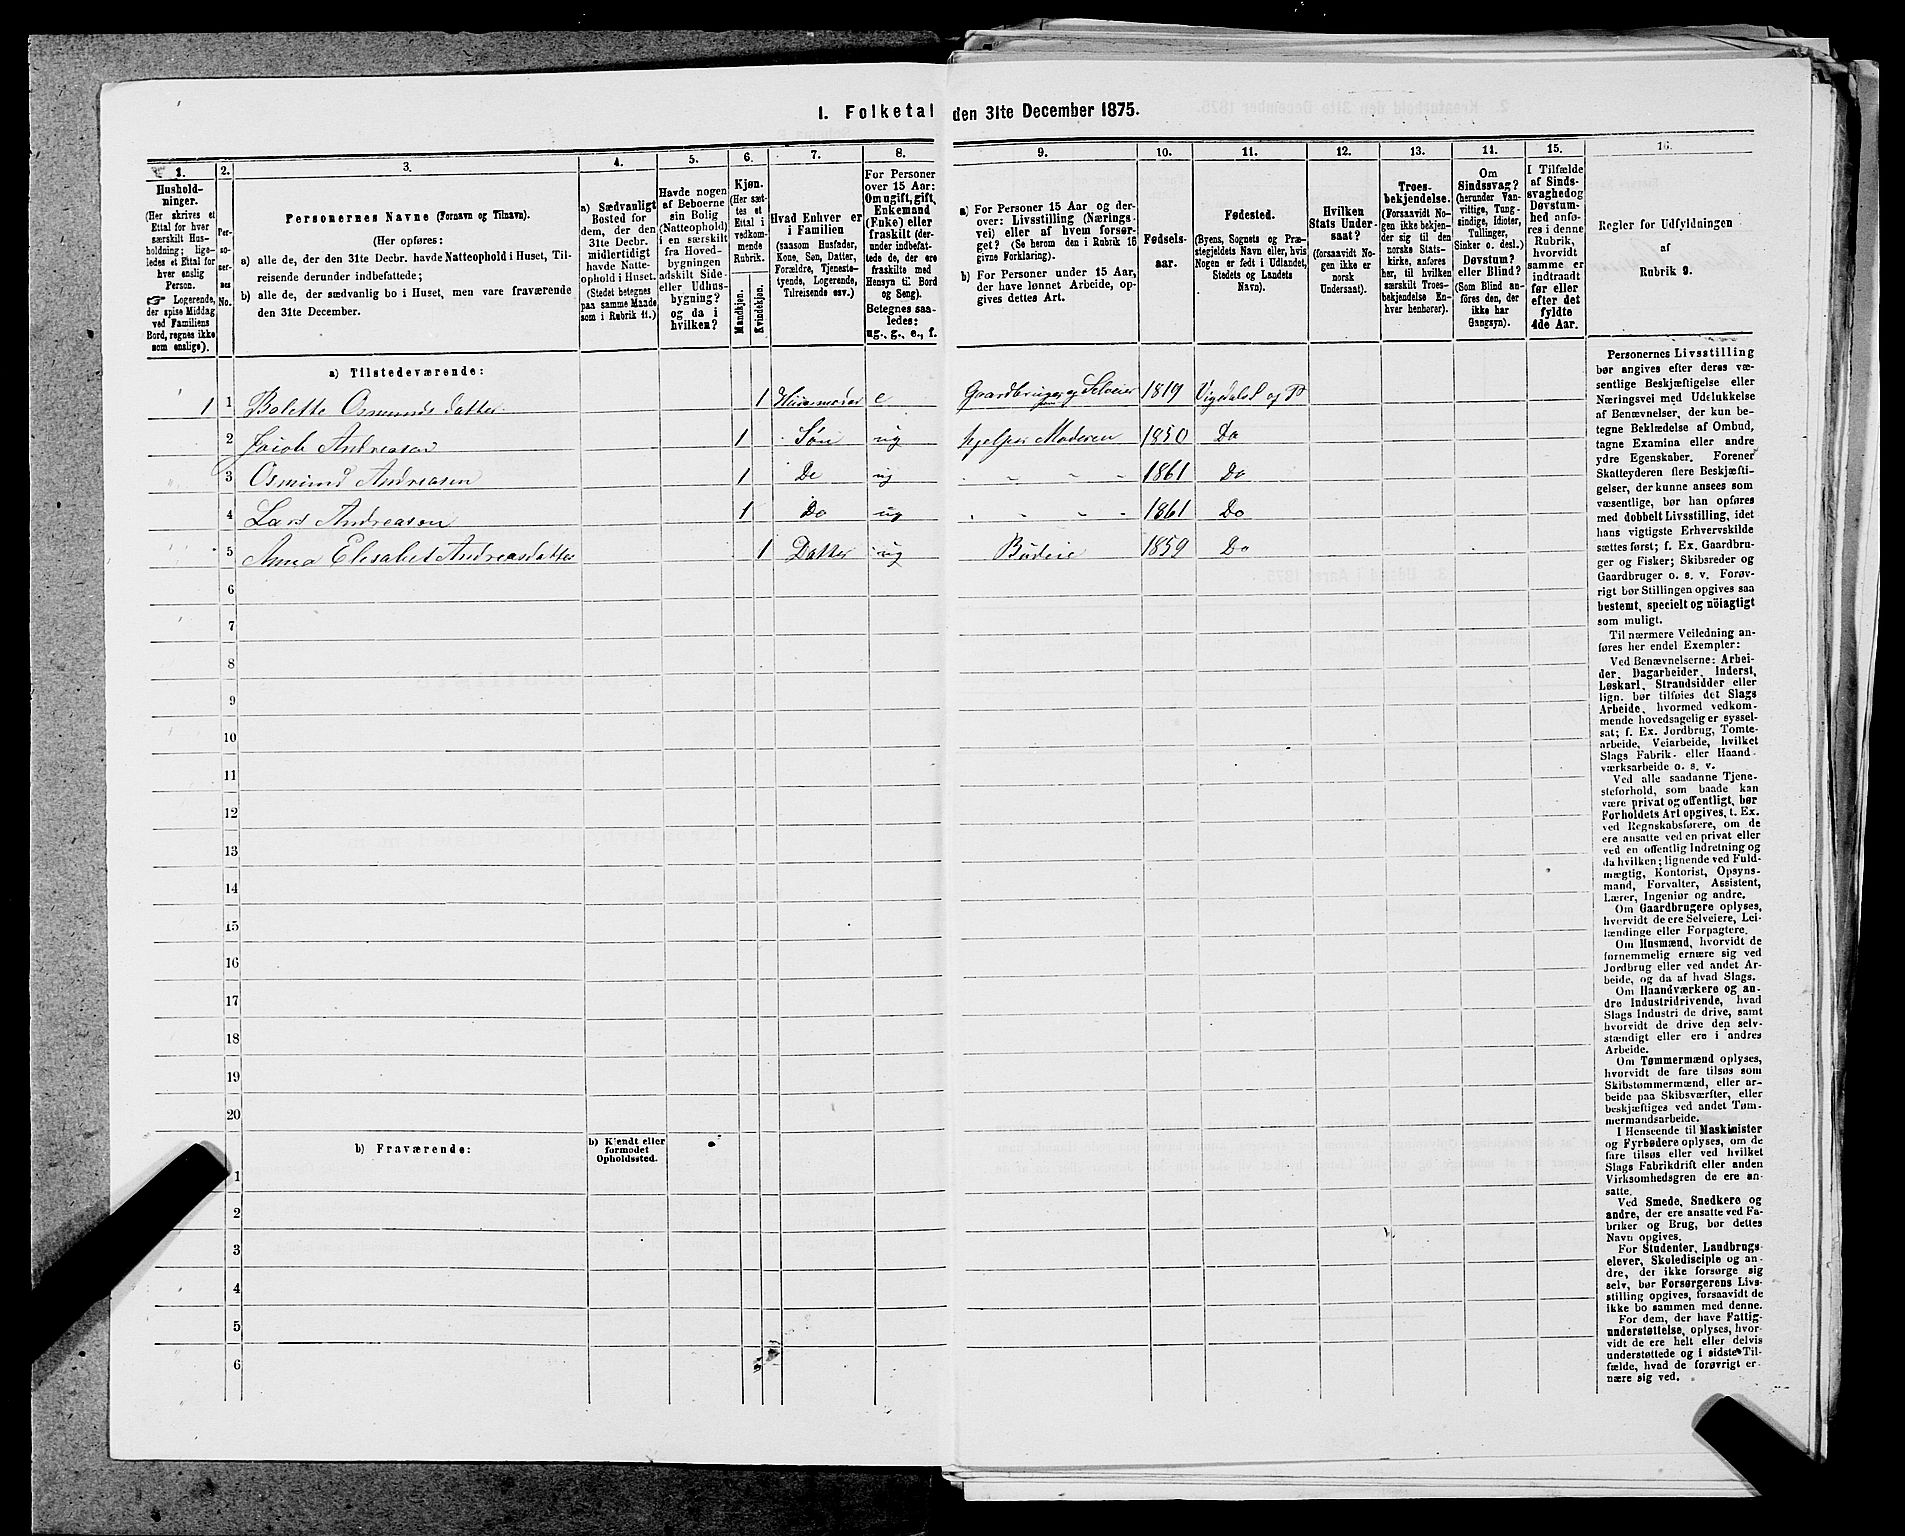 1. Folketal den 31te December 1875.
1.
Hushold-
ninger.
(Her skrives et
Ettal for hver
særskilt Hus-
holdning; lige-
ledes et Ettal for
hver enslig
Person.
☞ Logerende,
der spise Middag
ved Familiens
Bord, regnes ikke
som enslige).
2.
Per-
so-
ner-
nes
No.
3.
Personernes Navne (Fornavn og Tilnavn).
(Her opføres:
a) alle de, der den 31te Decbr. havde Natteophold i Huset, Til-
reisende derunder indbefattede;
b) alle de, der sædvanlig bo i Huset, men vare fraværende
den 31te December.
4.
a) Sædvanligt
Bosted for
dem, der den
31te Decbr.
midlertidigt
havde Natte-
ophold i Huset.
(Stedet betegnes
paa samme Maade
som i Rubrik 11.)
5.
Havde nogen
af Beboerne
sin Bolig
(Natteophold)
i en særskilt
fra Hoved-
bygningen
adskilt Side-
eller Udhus-
bygning?
og da i
hvilken?
6.
Kjøn.
(Her sæt-
tes et
Ettal i
vedkom-
mende
Rubrik.
Mandkjøn.
Kvindekjøn.
7.
Hvad Enhver er
i Familien
(saasom Husfader,
Kone, Søn, Datter,
Forældre, Tjeneste-
tyende, Logerende,
Tilreisende osv.)
8.
For Personer
over 15 Aar:
Om ugift, gift,
Enkemand
(Enke) eller
fraskilt (der-
under indbefat-
tede de, der ere
fraskilte med
Hensyn til Bord
og Seng).
Betegnes saa-
ledes:
ug., g., e., f.
9.
a) For Personer 15 Aar og der-
over: Livsstilling (Nærings-
vei) eller af hvem forsør-
get? (Se herom den i Rubrik 16
givne Forklaring).
b) For Personer under 15 Aar,
der have lønnet Arbeide, op-
gives dettes Art.
10.
Fødsels-
aar.
11.
Fødested.
(Byens, Sognets og Præ-
stegjeldets Navn eller, hvis
Nogen er født i Udlandet,
Stedets og Landets
Navn).
12.
Hvilken
Stats Under-
saat?
(forsaavidt No-
gen ikke er
norsk
Undersaat).
13.
Troes-
bekjendelse.
(Forsaavidt No-
gen ikke bekjen-
der sig til den
norske Stats-
kirke, anføres
her, til hvilken
særskilt Troes-
bekjendelse En-
hver henhører).
14.
Om
Sindssvag?
(herunder Van-
vittige, Tung-
sindige, Idioter,
Tullinger,
Sinker o. desl.)
Døvstum?
eller Blind?
(Som Blind an-
føres den, der
ikke har
Gangsyn).
15.
I Tilfælde
af Sinds-
svaghed og
Døvstum-
hed anfø-
res i denne
Rubrik,
hvorvidt
samme er
indtraadt
før eller
efter det
fyldte
4de Aar.
16.
Regler for Udfyldningen
af
Rubrik 9.
a) Tilstedeværende:
1 1 Bolette Osmundsdatter 1 Husmoder e Gaardbruger og Selveier 1819 Vigedals S og P
2 Jacob Andreasen 1 Søn ug hjelper Moderen 1850 Do
3 Osmund Andreasen 1 Do ug " " " " 1861 Do
4 Lars Andreasen 1 Do ug " " " " 1861 Do
5 Anna Elisabet Andreasdatter 1 Datter ug Budeie 1859 Do
6
7
8
9
10
11
12
13
14
15
16
17
18
19
20
b) Fraværende:
b) Kjendt eller
formodet
Opholdssted.
1
2
3
4
5
6
Personernes Livsstilling
bør angives efter deres væ-
sentlige Beskjæftigelse eller
Næringsvei med Udelukkelse
af Benævnelser, der kun be-
tegne Beklædelse af Ombud,
tagne Examina eller andre
ydre Egenskaber. Forener
Skatteyderen flere Beskjæfti-
gelser, der kunne ansees som
væsentlige, bør han opføres
med dobbelt Livsstilling, idet
hans vigtigste Erhvervskilde
sættes først; f. Ex. Gaardbru-
ger og Fisker; Skibsreder og
Gaardbruger o. s. v. Forøv-
rigt bør Stillingen opgives saa
bestemt, specielt og nöiagtigt
som muligt.
Til nærmere Veiledning an-
føres her endel Exempler:
Ved Benævnelserne: Arbei-
der, Dagarbeider, Inderst,
Løskarl, Strandsidder eller
lign. bør tilføies det Slags
Arbeide, hvormed vedkom-
mende hovedsagelig er syssel-
sat; f. Ex. Jordbrug, Tomte-
arbeide, Veiarbeide, hvilket
Slags Fabrik- eller Haand-
værksarbeide o. s. v.
Ved alle saadanne Tjene-
steforhold, som baade kan
være privat og offentligt, bør
Forholdets Art opgives, t. Ex.
ved Regnskabsførere, om de
ere ansatte ved en privat eller
ved en offentlig Indretning og
da hvilken; lignende ved Fuld-
mægtig, Kontorist, Opsyns-
mand, Forvalter, Assistent,
Lærer, Ingeniør og andre.
Om Gaardbrugere oplyses,
hvorvidt de ere Selveiere, Lei-
lændinge eller Forpagtere.
Om Husmænd, hvorvidt de
fornemmelig ernære sig ved
Jordbrug eller ved andet Ar-
beide, og da af hvad Slags.
Om Haandværkere og an-
dre Industridrivende, hvad
Slags Industri de drive, samt
hvorvidt de drive den selv-
stændigt eller ere i andres
Arbeide.
Om Tømmermænd oplyses,
hvorvidt de fare tilsøs som
Skibstømmermænd, eller ar-
beide paa Skibsværfter, eller
beskjæftiges ved andet Tøm-
mermandsarbeide.
I Henseende til Maskinister
og Fyrbødere oplyses, om de
fare tilsøs eller ved hvilket
Slags Fabrikdrift eller anden
Virksomhedsgren de ere an-
satte.
Ved Smede, Snedkere og
andre, der ere ansatte ved Fa-
briker og Brug, bør dettes
Navn opgives.
For Studenter, Landbrugs-
elever, Skoledisciple og an-
dre, der ikke forsørge sig
selv, bør Forsørgerens Livs-
stilling opgives, forsaavidt de
ikke bo sammen med denne.
For dem, der have Fattig-
understøttelse, oplyses, hvor-
vidt de ere helt eller delvis
understøttede og i sidste Til-
fælde, hvad de forøvrigt er-
nære sig ved.